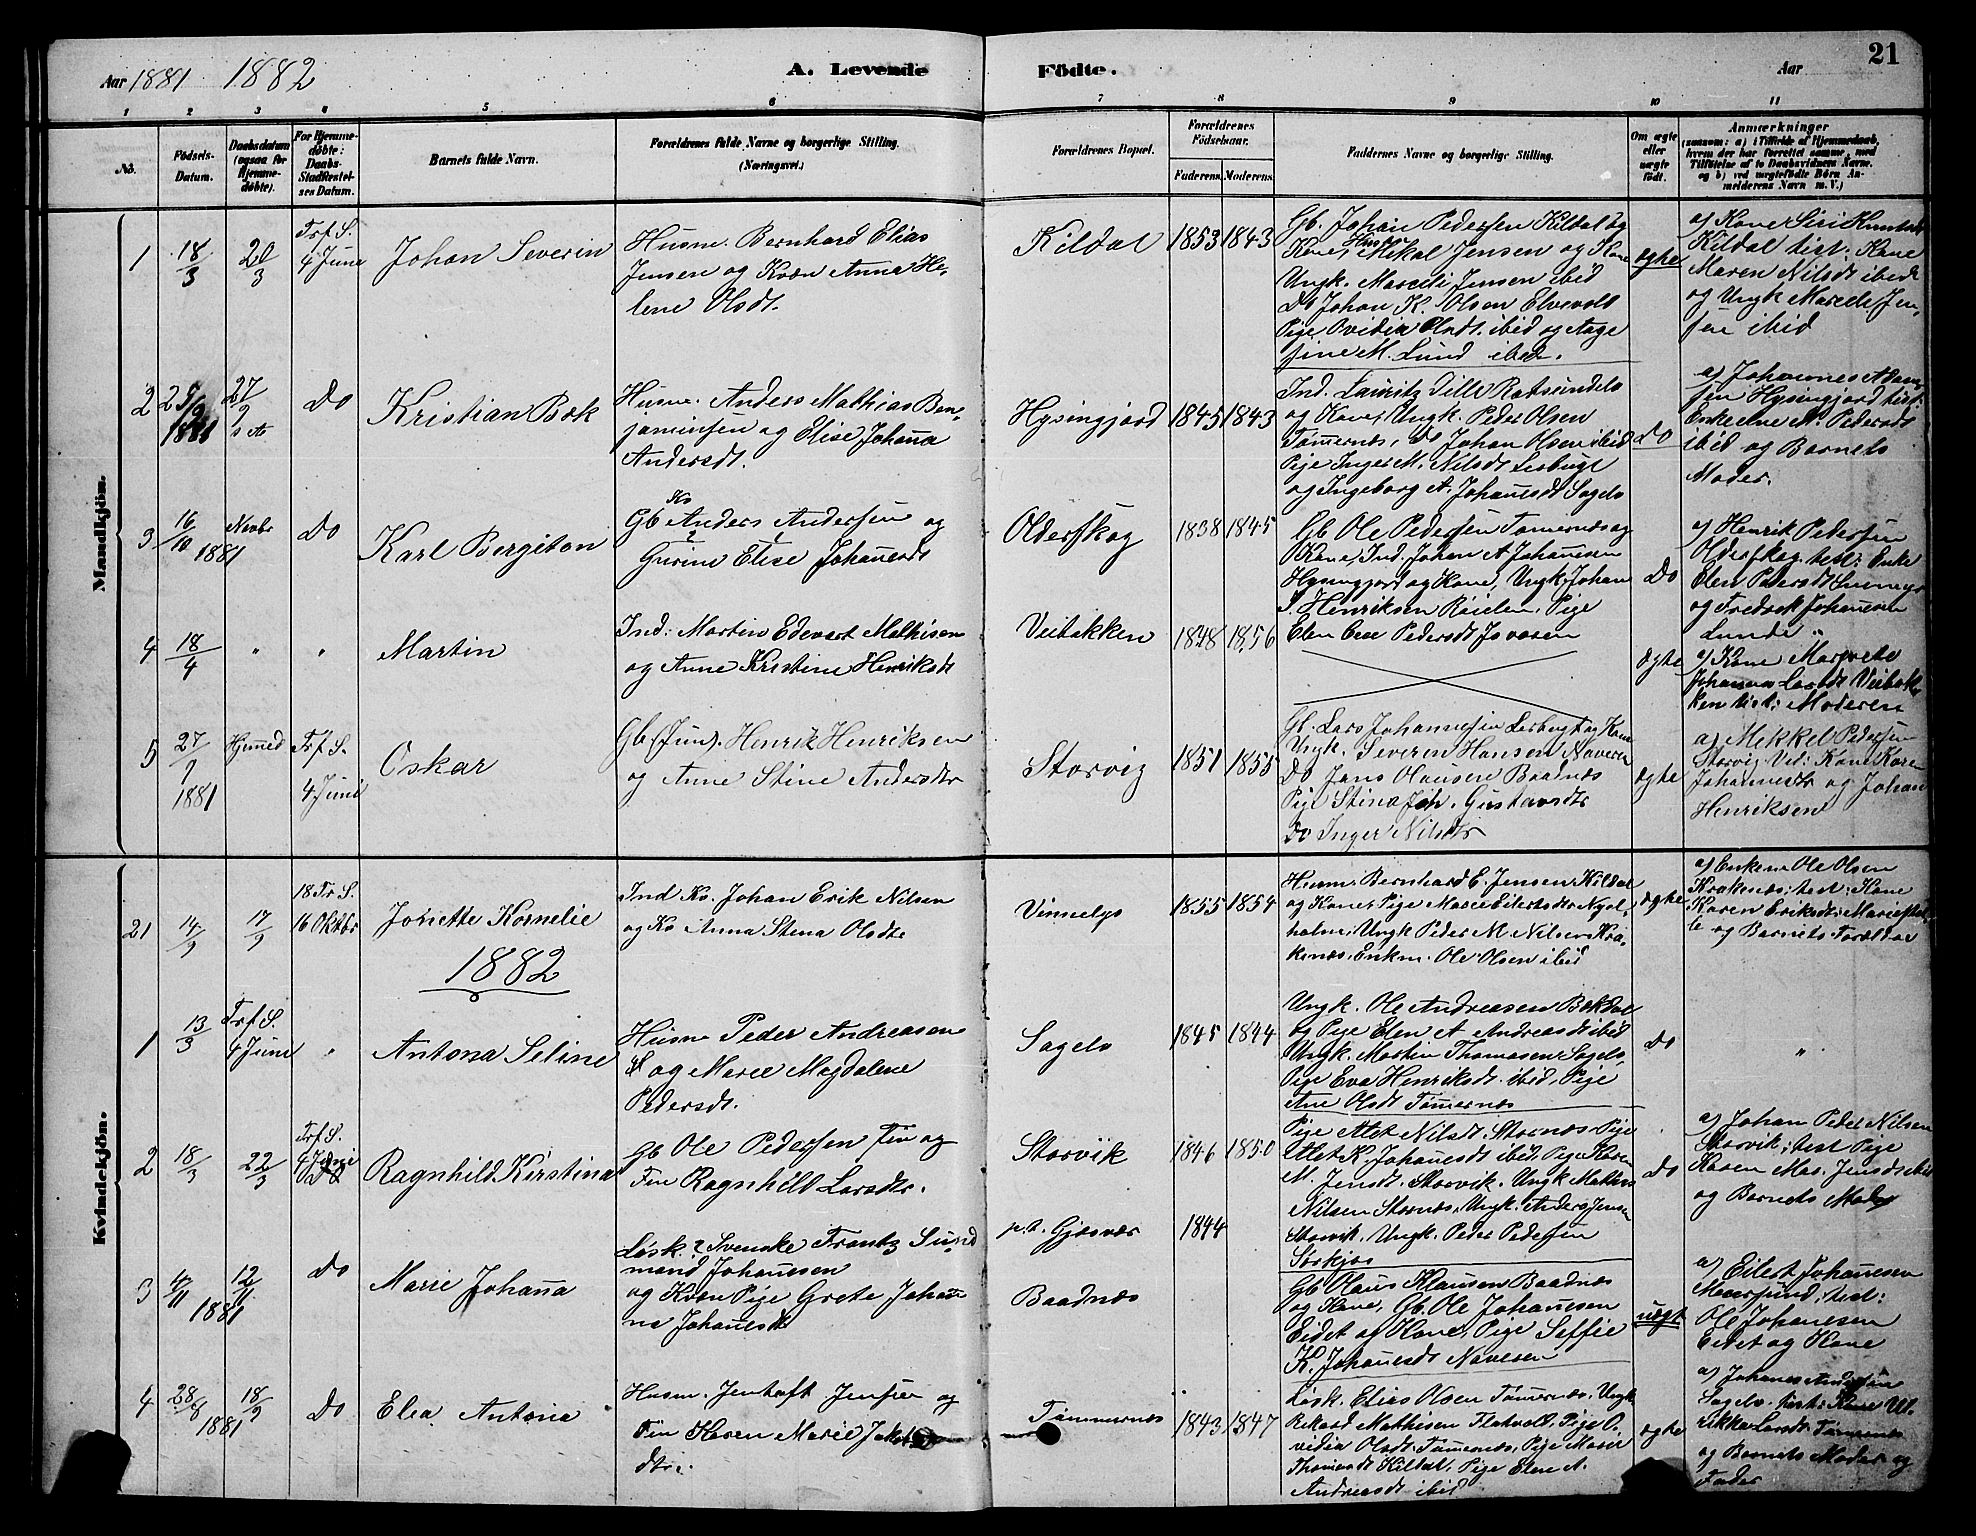 Aar 1881 1882
A. Levende Födte.
Aar
21
1 2 3 4 5 6 7 8 9 10 11
No.
Födsels-Datum.
Daabsdatum (ogsaa for Hjemme-döbte).
For Hjemme-döbte: Daabs-Stadfæstel-ses Datum.
Barnets fulde Navn.
Forældrenes fulde Navne og borgerlige Stilling.
(Næringsvei.)
Forældrenes Bopæl.
Forældrenes Födselsaar.
Faderens. Moderens.
Faddernes Navne og borgerlige Stilling.
Om ægte eller uægte födt.
Anmærkninger
(saasom: a) i Tilfælde af Hjemmedaab, hvem der har forrettet samme, med Tilföielse af to Daabsvidners Navne, og b) ved uægtefödte Börn An-melderens Navn m. V.)
Mandkjön.
1 18/3 20/3 Trf S. 4 June
Johan Severin
Husm. Bernhard Elias
Jensen og Kvæn Anna He-
lene Olsdt.
Kildal 1853 1843
Gb. Johan Pedersen Kildal og
Kone, Husm Mikal Jensen og Kone
Ungk. Marceli Jensen ibid
Do Johan K. Olsen Elvevold
Pige Ovidia Olsdt. ibid og Aage
sine M. Lund ibid.
ægte
a) Kone Siri Knutsdt
Kildal test: Kone
Maren Nilsdt ibid
og Ungk Marceli Jen-
sen ibid
2 25/9 1881 27/9 Do
Kristian Bæk
Husm. Anders Mathias Ben-
jaminsen og Elise Johanna
Andersdt.
Hysingjord 1845 1843
Ind. Lauritz Tille Rotsundelv
og Kone, Ungk. Peder Olsen
Tømernæs, Do Johan Olsen ibid
Pige Inger M. Nilsdt
og Ingeborg A. Johanesdt Sagelv
Do
a) Johannes Adam-
sen Hysingjord test:
Enke Ane M. Pedersdt
ibid og Barnets
Moder.
3 16/10 1881 Novbr Do
Karl Bergiton
Gb Anders Andersen og
Gurine Elise Johanesdt
Olderskog 1838 1845
Gb Ole Pedersen Tømernæs og
Kone, Ind. Johan A Johanesen
Hysingjord og Kone, Ungk. Johan
P. Henriksen Röielen, Pige
Elen Pedersdt
Do
a) Henrik Pedersen
Olderskog test: Enke
Elen Pedersdt
og Fredrik Johanesen
Lunde "
4 18/4 " "
Martin
Ind: Martin Edevart Mathisen
og Anne Kristine Henriksdt
Veibakken 1848 1856
ægte
a) Kone Margrete
Johanna Larsdt Veibak-
ken test: Moderen
5 27/9 1881 Hjemed Trf S. 4 Juni
Oskar
Gb (Fin). Henrik Henriksen
og Anne Stine Andersdtr
Storvig 1851 1855
Gb. Lars Johannesen og Kone
Ungk. Severin Hansen Naveren
Do Jans Hansen Baadnæs
Pige Stina Joh. Gustavsdtr
Do Inger Nilsdtr
ægte
a) Mekkel Pedersen
Storvig Vid: Kone Karen
Johannesdtr og Johan
Henriksen
Kvindekjön.
21 14/9 17/9 18 Tr S. 16 Oktbr
Jonette Kornelie
Ind Kv. Johan Erik Nilsen
og Kv Anna Stena Olsdtr
Vinnelys 1855 1854
Husm. Bernhard E. Jensen Kildal
og Kone, Pige Marie Eilertsdtr Nygel-
holm, Ungk Peder M. Nilsen Kra-
kenæs, Enkm. Ole Olsen ibid
ægte
a) Enkem Ole Olsen
Krakenæs; test: Kone
Karen Eriksdt;
og Barnets Forældre
1882
1 13/3 Trf S. 4 June "
Antona Seline
Husm Peder Andreasen
og Marie Magdalene
Pedersdt.
Sagelv 1845 1844
Ungk. Ole Andreasen Bækdal
og Pige Elen A Andreasdt ibid
Ungk. Martin Thomasen Sagelv,
Pige Eva Henriksdt. ibid, Pige
Ane Olsdt Tømernæs
Do
"
2 18/3 22/3 Trf S. 4 Juni
Ragnhild Kirstina
Gb Ole Pedersen Fin og
Fin Ragnhild Larsdtr.
Storvik 1846 1850
Pige Alet Nilsdt. Stornæs, Pige
Alet K. Johanesdt ibid, Pige Karen
M. Jensdt. Storvik. Ungk Mathis
Nilsen Stornæs, Ungk. Anders Jensen
Storvik. Ungk. Peder Pedersen
Sørkjos
Do
a) Johan Peder Nilsen
Storvik; test Pige
Karen Mar. Jensdt ibid
og Barnets Moder
3 4/11 12/11 1881 Do
Marie Johanna
Løsk. ? Svenske Frantz Sund
mand Johannesen
og Kvæn Pige Grete Johan
na Johanesdt
p.t. Gjæsvær 1844
Baadnæs
Gb Olaus Klausen Baadnæs
og Kone, Gb. Ole Johanesen
Eidet og Kone, Pige Seffie
K. Johanesdt Naveren
uægt
a) Eilert Johanesen
Maursund; test:
Ole Johanesen
Eidet og Kone
4 28/8 18/9 1881 Do
Elea Antona
Husm. Jentoft Jensen og
Fin Karen Marie
dtr.
Tømmernæs 1843 1847
Løsk. Elias Olsen Tømernæs, Ungk
Rikard Mathisen Flatvold. Pige O-
vidia Olsdt. Tømernæs, Pige Maren
Thomasdt Kildal, Pige Elen A.
Andreasdt ibid
ægte
a) Johanes Andersen
Sagelv. test: Kone Ul-
rikke Larsdt Tømernæs
og Barnets Moder og
Fader